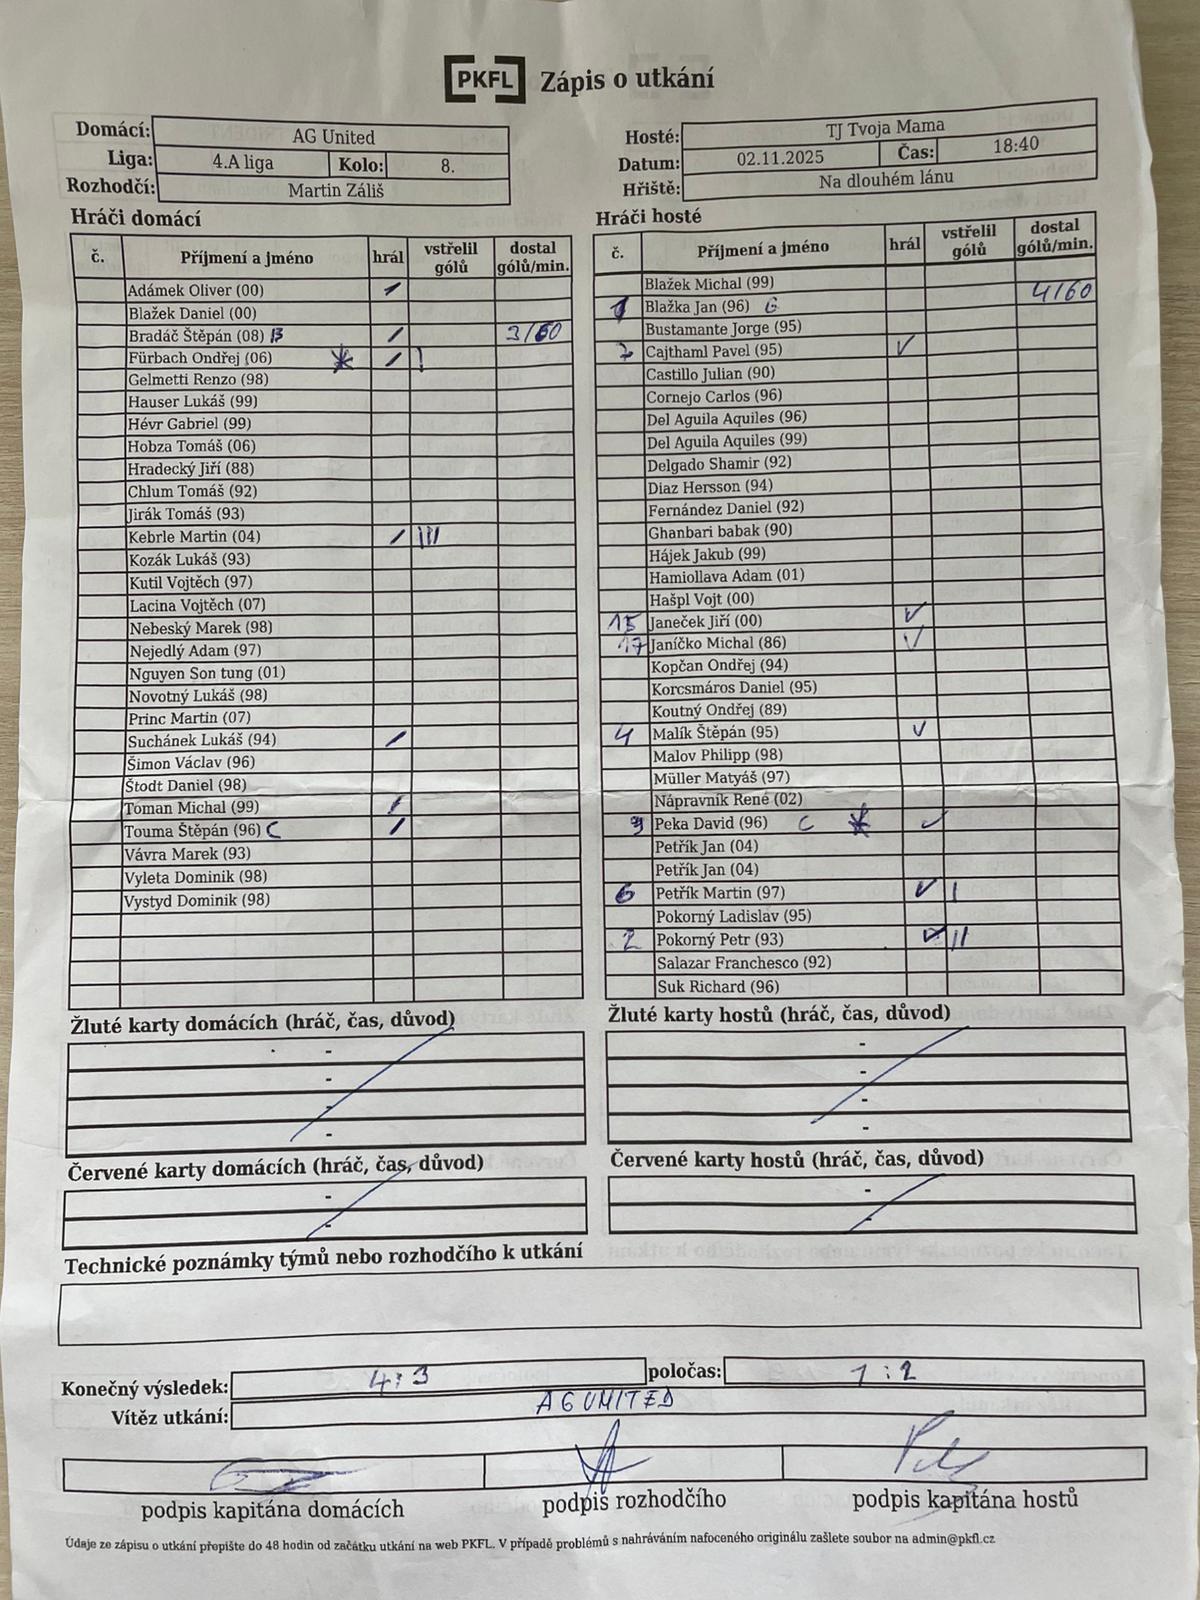 PKFL Zápis o utkání
Domácí: AG United
Liga: 4.A liga Kolo: 8.
Rozhodčí: Martin Záliš
Hosté: TJ Tvoja Mama
Datum: 02.11.2025 Čas: 18:40
Hřiště: Na dlouhém lánu
Hráči domácí
č. Příjmení a jméno hrál vstřelil gólů dostal gólů/min.
Adámek Oliver (00) /
Blažek Daniel (00)
Bradáč Štěpán (08) B / 3/60
Fürbach Ondřej (06) * / |
Gelmetti Renzo (98)
Hauser Lukáš (99)
Hévr Gabriel (99)
Hobza Tomáš (06)
Hradecký Jiří (88)
Chlum Tomáš (92)
Jirák Tomáš (93)
Kebrle Martin (04) / |||
Kozák Lukáš (93)
Kutil Vojtěch (97)
Lacina Vojtěch (07)
Nebeský Marek (98)
Nejedlý Adam (97)
Nguyen Son tung (01)
Novotný Lukáš (98)
Princ Martin (07)
Suchánek Lukáš (94) /
Šimon Václav (96)
Štodt Daniel (98)
Toman Michal (99) /
Touma Štěpán (96) C /
Vávra Marek (93)
Vyleta Dominik (98)
Vystyd Dominik (98)
Hráči hosté
č. Příjmení a jméno hrál vstřelil gólů dostal gólů/min.
Blažek Michal (99)
1 Blažka Jan (96) G 4/60
Bustamante Jorge (95)
7 Cajthaml Pavel (95) ✓
Castillo Julian (90)
Cornejo Carlos (96)
Del Aguila Aquiles (96)
Del Aguila Aquiles (99)
Delgado Shamir (92)
Diaz Hersson (94)
Fernández Daniel (92)
Ghanbari babak (90)
Hájek Jakub (99)
Hamiollava Adam (01)
Hašpl Vojt (00)
15 Janeček Jiří (00) ✓
17 Janíčko Michal (86) ✓
Kopčan Ondřej (94)
Korcsmáros Daniel (95)
Koutný Ondřej (89)
4 Malík Štěpán (95) ✓
Malov Philipp (98)
Müller Matyáš (97)
Nápravník René (02)
9 Peka David (96) C * ✓
Petřík Jan (04)
Petřík Jan (04)
6 Petřík Martin (97) ✓ |
Pokorný Ladislav (95)
2 Pokorný Petr (93) ✓ ||
Salazar Franchesco (92)
Suk Richard (96)
Žluté karty domácích (hráč, čas, důvod)
-
-
-
-
Žluté karty hostů (hráč, čas, důvod)
-
-
-
-
Červené karty domácích (hráč, čas, důvod)
-
-
Červené karty hostů (hráč, čas, důvod)
-
-
Technické poznámky týmů nebo rozhodčího k utkání
Konečný výsledek: 4:3 poločas: 1:2
Vítěz utkání: AG UNITED
podpis kapitána domácích podpis rozhodčího podpis kapitána hostů
Údaje ze zápisu o utkání přepište do 48 hodin od začátku utkání na web PKFL. V případě problémů s nahráváním nafoceného originálu zašlete soubor na admin@pkfl.cz